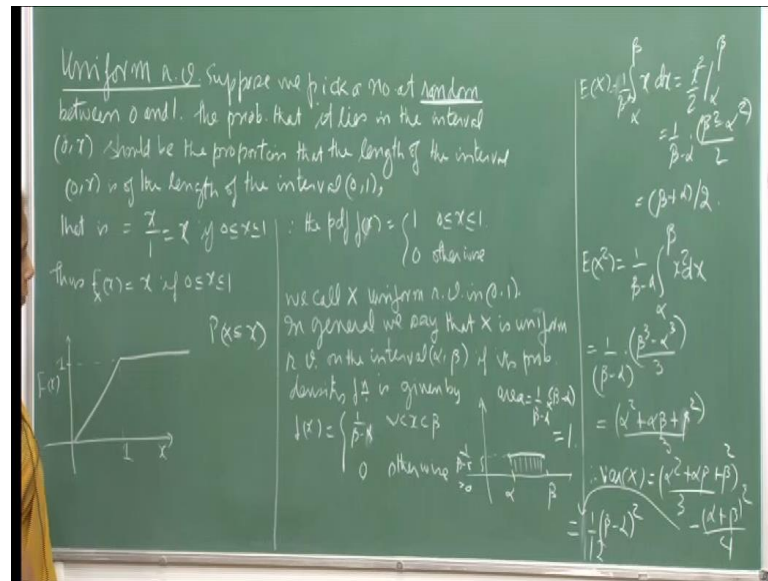 Uniform r.v. Suppose we pick a no at random
between 0 and 1. The prob. that it lies in the interval
(0,x) should be the proportion that the length of the interval
(0,x) is of the length of the interval (0,1),
that is = x/1 = x if 0≤x≤1
Thus F_X(x) = x if 0≤x≤1
P(X≤x)
F(x)
1
1
x
∴ the pdf f(x) = { 1 0≤x≤1
0 otherwise
we call X uniform r.v. in (0,1).
In general we say that X is uniform
r.v. on the interval (α,β) if its prob
density fn is given by
f(x) = { 1/(β-α) α<x<β
0 otherwise
area = 1/(β-α) (β-α)
= 1.
α
β
E(X) = 1/(β-α) ∫_α^β x dx = x²/2 |_α^β
= 1/(β-α) (β²-α²)/2
= (β+α)/2.
E(X²) = 1/(β-α) ∫_α^β x² dx
= 1/(β-α) · (β³-α³)/3
= (α²+αβ+β²)/3
∴ Var(X) = (α²+αβ+β²)/3
- (α+β)²/4
= 1/12 (β-α)²